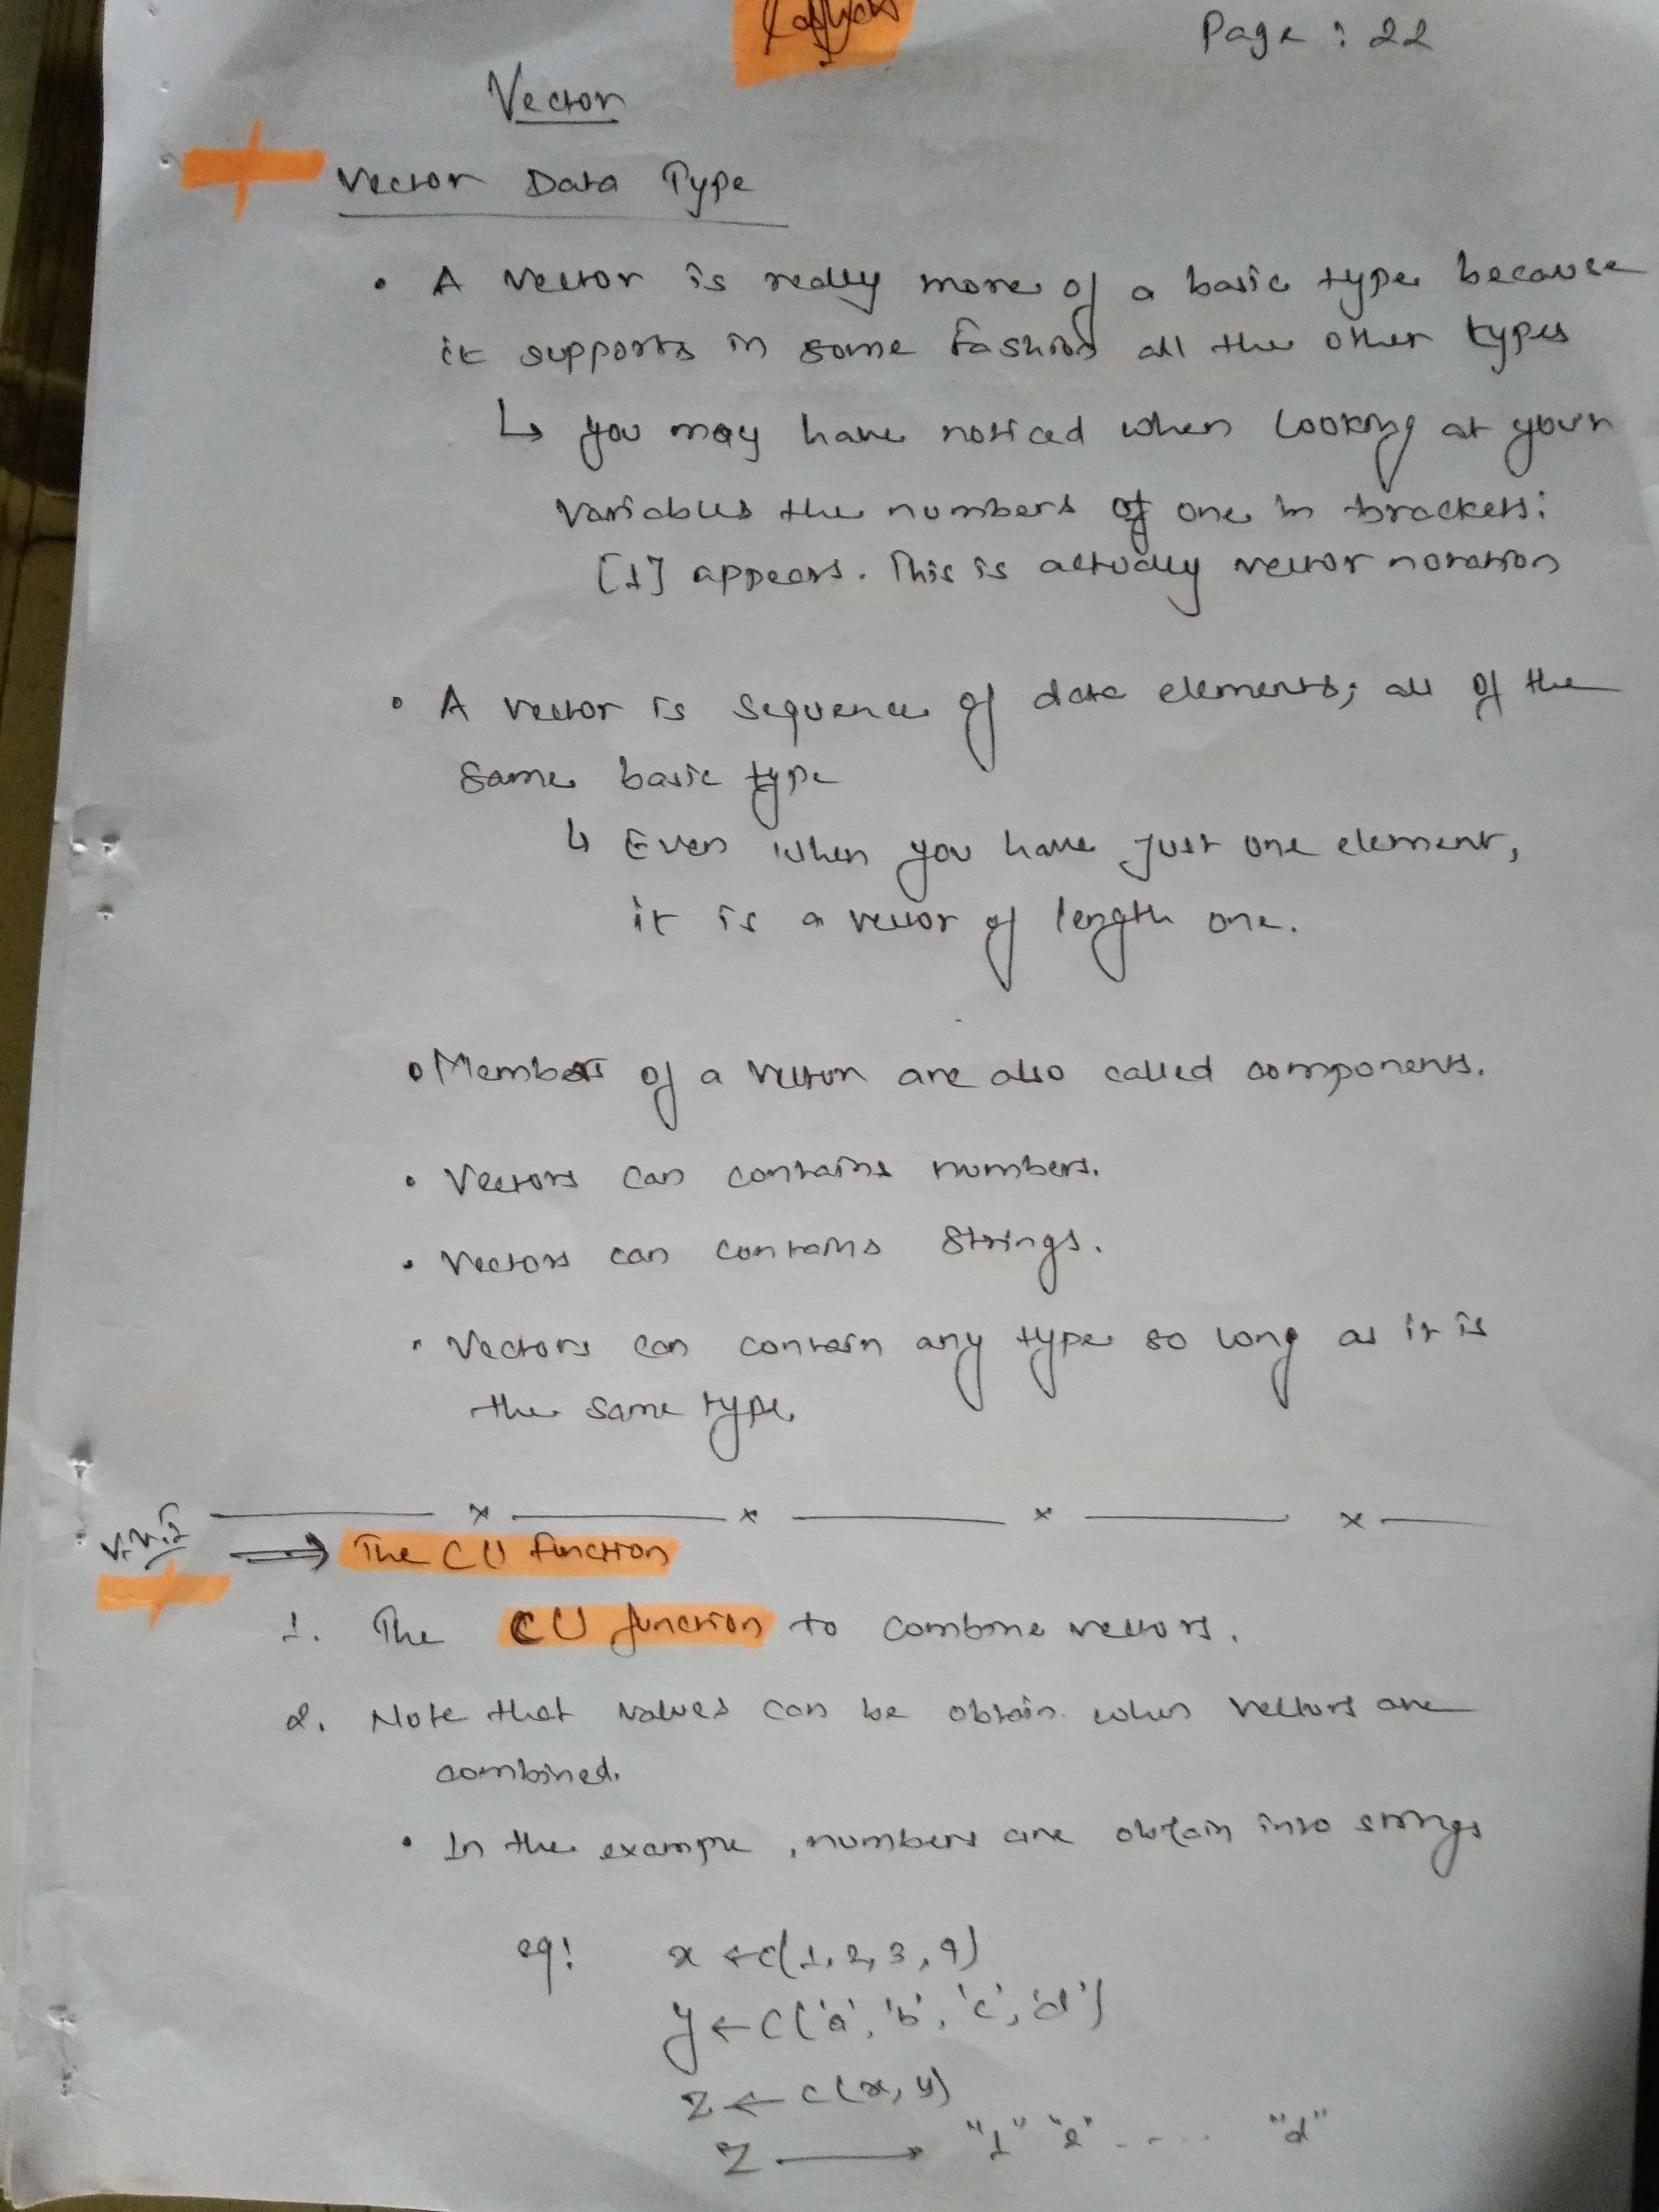 Page : 22
Vector
Vector Data Type
• A vector is really more of a basic type because
it supports in some fashion all the other types
↳ you may have noticed when looking at your
variables the numbers of one in brackets:
[1] appears. This is actually vector notation
• A vector is sequence of data elements; all of the
same basic type
↳ Even when you have just one element,
it is a vector of length one.
• Members of a vector are also called components.
• Vectors can contains numbers.
• Vectors can contains strings.
• Vectors can contain any type so long as it is
the same type.
x x x x
V.V.I ⇒ The C() function
1. The C() function to combine vectors.
2. Note that values can be obtain when vectors are
combined.
• In the example, numbers are obtain into strings
eg: x ← c(1, 2, 3, 4)
y ← c('a', 'b', 'c', 'd')
z ← c(x, y)
z → "1" "2" .... "d"